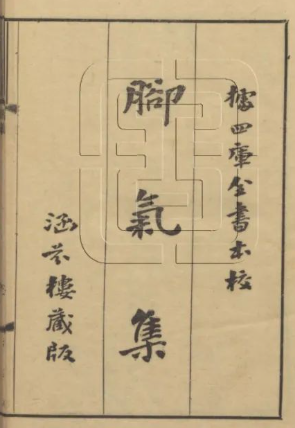 據四庫全書本校
腳氣集
涵芬樓藏版